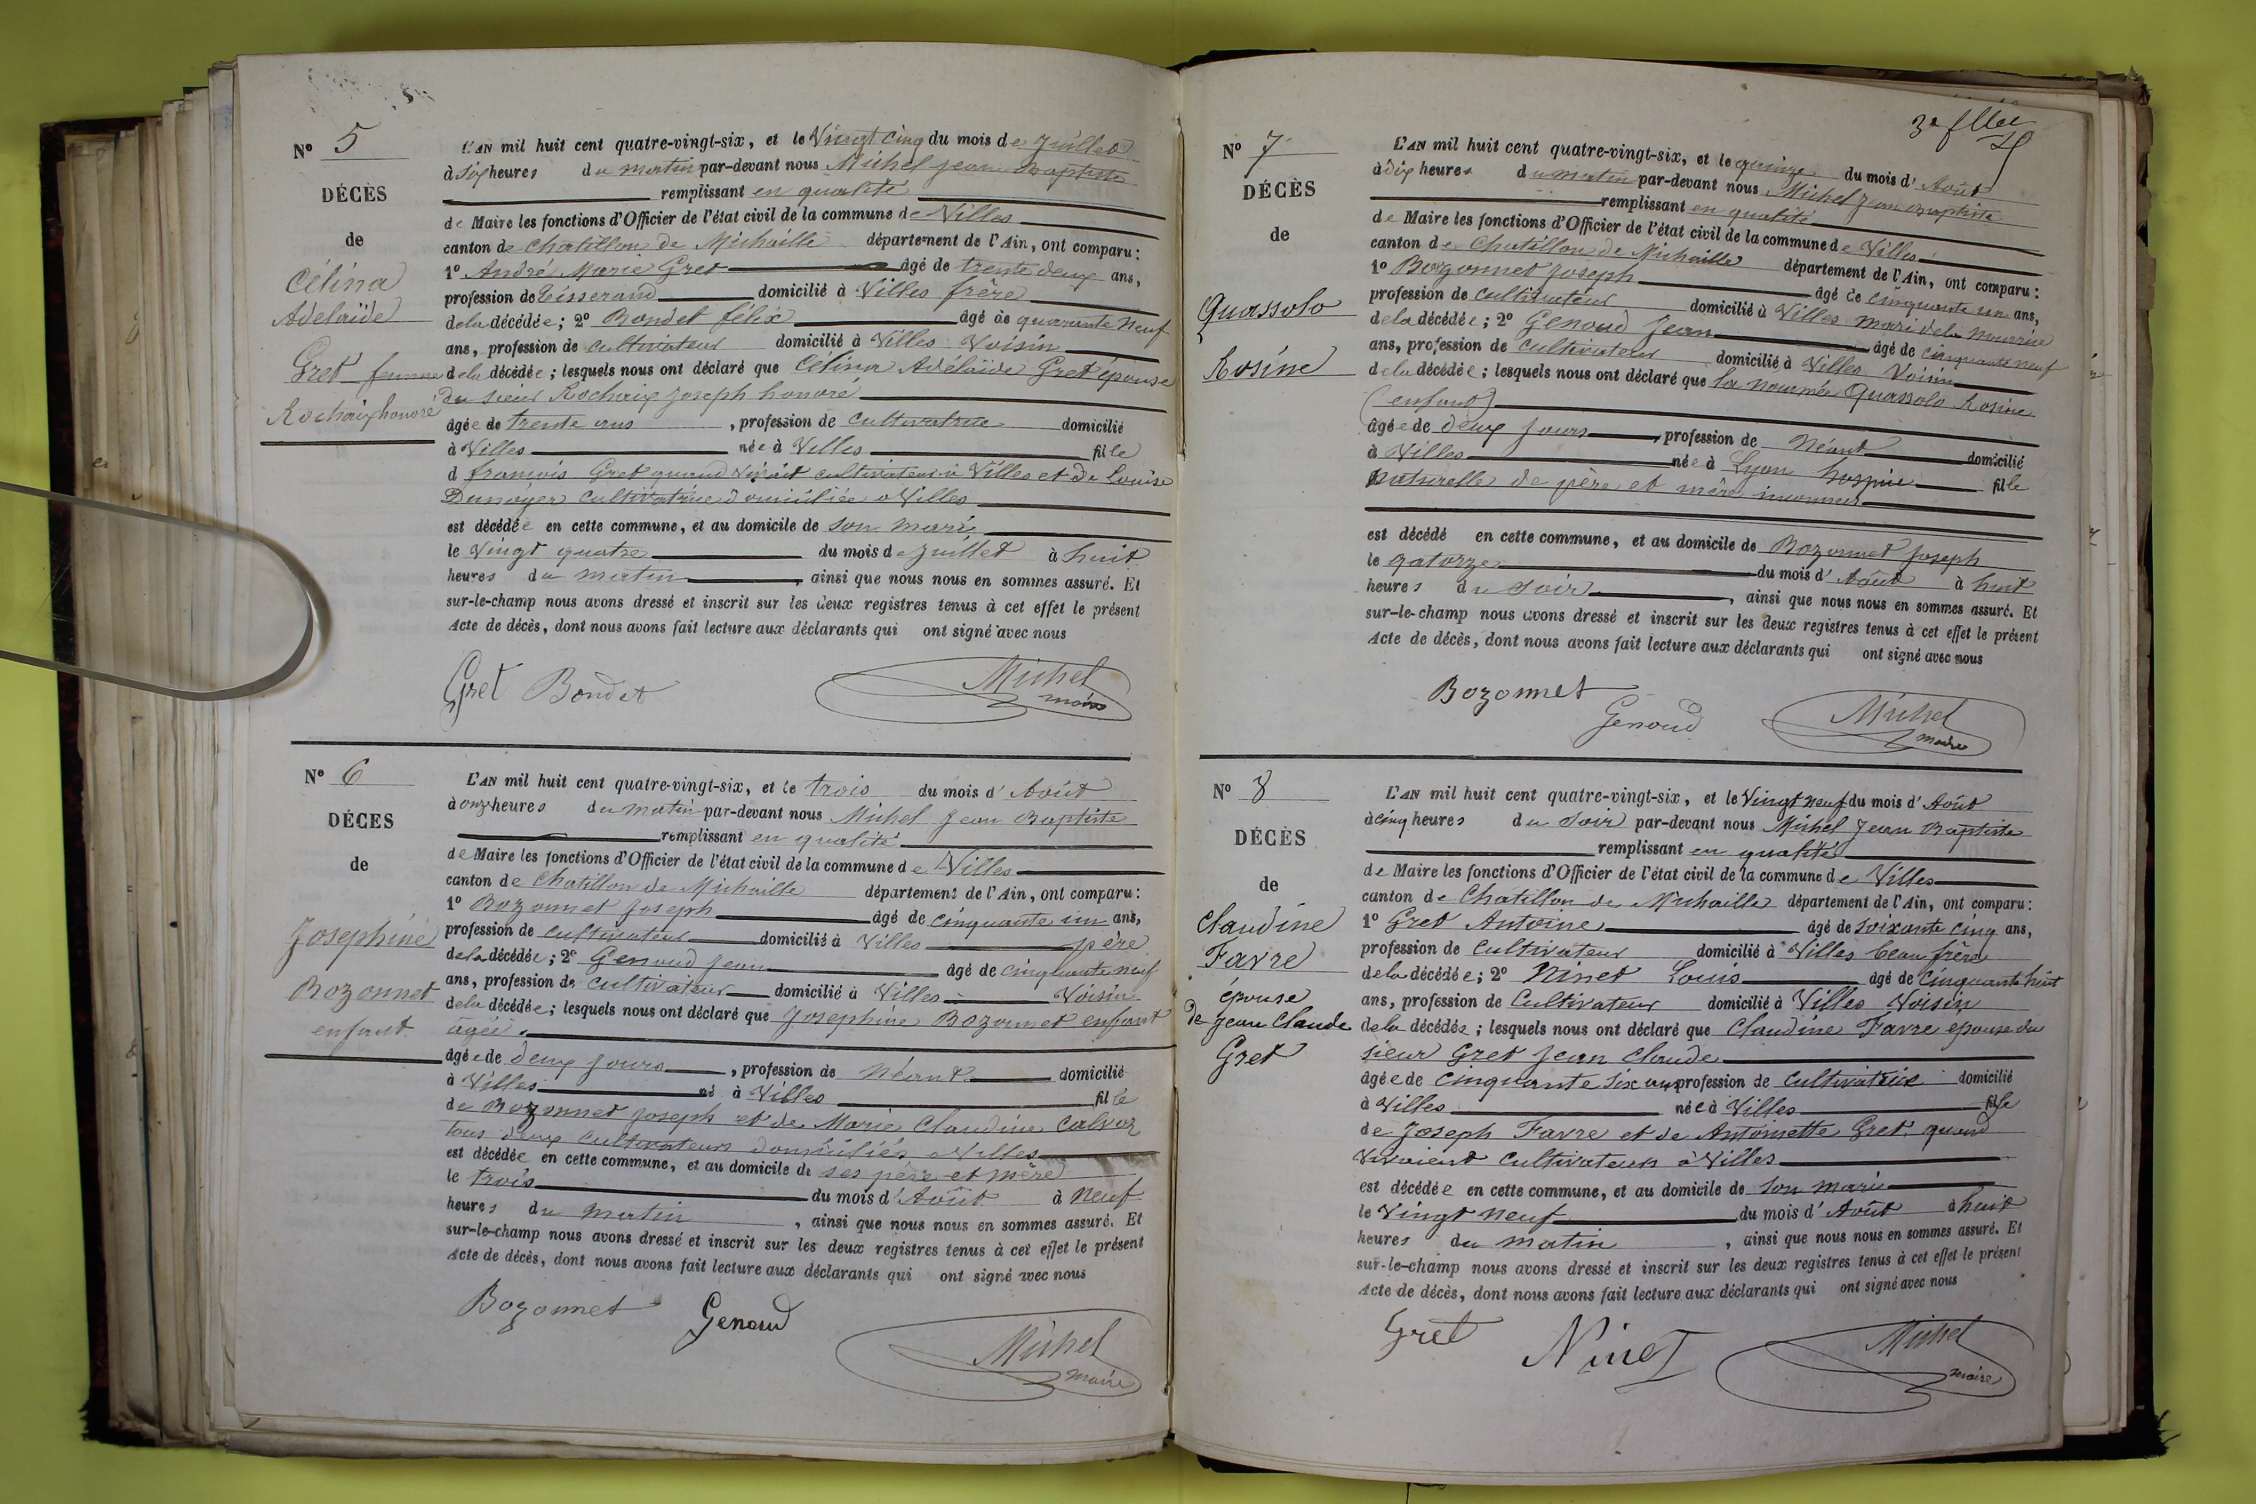 N° 5
DÉCÈS
de
Célina
Adelaïde
Gret femme
Rochaix honoré
L'AN mil huit cent quatre-vingt-six, et le Vingt cinq du mois de Juillet
à six heures du matin par-devant nous Michel Jean Baptiste
remplissant en qualité
de Maire les fonctions d'Officier de l'état civil de la commune de Villes
canton de Chatillon de Michaille département de l'Ain, ont comparu :
1° André Marie Gret âgé de trente deux ans,
profession de tisserand domicilié à Villes frère
de la décédée ; 2° Bondet félix âgé de quarante neuf
ans, profession de cultivateur domicilié à Villes Voisin
de la décédée ; lesquels nous ont déclaré que Célina Adélaïde Gret épouse
du sieur Rochaix Joseph honoré
âgée de trente ans, profession de Cultivatrice domicilié
à Villes née à Villes fille
d françois Gret quand vivait cultivateur à Villes et de Louise
Dunoyer cultivatrice domiciliée à Villes
est décédée en cette commune, et au domicile de son mari
le Vingt quatre du mois de Juillet à huit
heures du matin, ainsi que nous nous en sommes assuré. Et
sur-le-champ nous avons dressé et inscrit sur les deux registres tenus à cet effet le présent
Acte de décès, dont nous avons fait lecture aux déclarants qui ont signé avec nous
Gret Bondet Michel
maire
N° 6
DÉCES
de
Joséphine
Bozonnet
enfant
L'AN mil huit cent quatre-vingt-six, et le trois du mois d'Août
à onze heures du matin par-devant nous Michel Jean Baptiste
remplissant en qualité
de Maire les fonctions d'Officier de l'état civil de la commune de Villes
canton de Chatillon de Michaille département de l'Ain, ont comparu :
1° Bozonnet Joseph âgé de cinquante un ans,
profession de cultivateur domicilié à Villes père
de la décédée ; 2° Genoud Jean âgé de cinquante neuf
ans, profession de cultivateur domicilié à Villes Voisin
de la décédée ; lesquels nous ont déclaré que Joséphine Bozonnet enfant
agée
âgée de deux jours, profession de Néant domicilié
à Villes né à Villes fille
de Bozonnet Joseph et de Marie Claudine Calvoz
tous deux cultivateurs domiciliés à Villes
est décédée en cette commune, et au domicile de ses père et mère
le trois du mois d'Août à neuf
heures du matin, ainsi que nous nous en sommes assuré. Et
sur-le-champ nous avons dressé et inscrit sur les deux registres tenus à cet effet le présent
Acte de décès, dont nous avons fait lecture aux déclarants qui ont signé avec nous
Bozonnet Genoud Michel
maire
3e
N° 7
DÉCÈS
de
Quassolo
Rosine
L'AN mil huit cent quatre-vingt-six, et le quinze du mois d'Août
à dix heures du matin par-devant nous Michel Jean Baptiste
remplissant en qualité
de Maire les fonctions d'Officier de l'état civil de la commune de Villes
canton de Chatillon de Michaille département de l'Ain, ont comparu :
1° Bozonnet Joseph âgé de cinquante un ans,
profession de cultivateur domicilié à Villes mari de la nourrice
de la décédée ; 2° Genoud Jean âgé de cinquante neuf
ans, profession de cultivateur domicilié à Villes Voisin
de la décédée ; lesquels nous ont déclaré que la nommée Quassolo Rosine
(enfant)
âgée de deux jours, profession de Néant domicilié
à Villes née à Lyon hospice fille
Naturelle de père et mère inconnus
est décédé en cette commune, et au domicile de Bozonnet Joseph
le qatorze du mois d'Août à huit
heures du soir, ainsi que nous nous en sommes assuré. Et
sur-le-champ nous avons dressé et inscrit sur les deux registres tenus à cet effet le présent
Acte de décès, dont nous avons fait lecture aux déclarants qui ont signé avec nous
Bozonnet
Genoud Michel
maire
N° 8
DÉCÈS
de
Claudine
Favre
épouse
de Jean Claude
Gret
L'AN mil huit cent quatre-vingt-six, et le Vingt neuf du mois d'Août
à cinq heures du soir par-devant nous Michel Jean Baptiste
remplissant en qualité
de Maire les fonctions d'Officier de l'état civil de la commune de Villes
canton de Chatillon de Michaille département de l'Ain, ont comparu :
1° Gret Antoine âgé de soixante cinq ans,
profession de cultivateur domicilié à Villes beau frère
de la décédée ; 2° Ninet Louis âgé de cinquante huit
ans, profession de Cultivateur domicilié à Villes Voisin
de la décédée ; lesquels nous ont déclaré que Claudine Favre épouse du
sieur Gret Jean Claude
âgée de cinquante six ans profession de cultivatrice domicilié
à Villes née à Villes fille
de Joseph Favre et de Antoinette Gret quand
vivaient cultivateurs à Villes
est décédée en cette commune, et au domicile de son mari
le Vingt neuf du mois d'Août à huit
heures du matin, ainsi que nous nous en sommes assuré. Et
sur-le-champ nous avons dressé et inscrit sur les deux registres tenus à cet effet le présent
Acte de décès, dont nous avons fait lecture aux déclarants qui ont signé avec nous
Gret Ninet Michel
maire